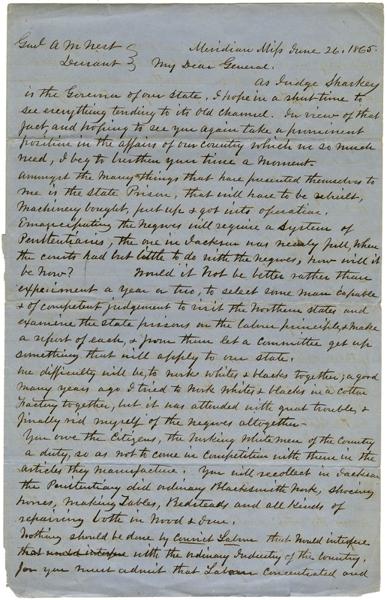 Genl A M West Meridian Miss June 26. 1865.
Durant My Dear General.
As Judge Sharkey
is the Governor of our State, I hope in a short time to
see everything tending to its old channel. In view of that
fact, and hoping to see you again take a prominent
position in the affairs of our country which is so much
need, I beg to burthen your time a moment.
Amongst the many things that have presented themselves to
me is the State Prison, that will have to be rebuilt,
Machinery bought, put up & got into operation.
Emancipating the negroes will require a System of
Penitentiaries, the one in Jackson was nearly full, when
the courts had but little to do with the negroes, how will it
be now? Would it not be better rather than
experiment a year or two, to select some man capable
& of competent judgement to visit the Northern states and
examine the State prisons on the labour principle, & make
a report of each, & from them let a Committee get up
something that will apply to our state.
One difficulty will be, to work whites & blacks together; a good
many years ago I tried to work whites & blacks in a cotton
factory together, but it was attended with great trouble, &
finally rid myself of the negroes altogether—
You owe the Citizens, the working white men of the Country
a duty, so as not to come in competition with them in the
articles they manufacture. You will recollect in Jackson
the Penitentiary did ordinary Blacksmith work, shoeing
horses, making Tables, Bedsteads and all kinds of
repairing both in Wood & Iron.
Nothing should be done by Convict Labour that would interfere
that would interfere with the ordinary Industry of the country.
for you must admit that Labour concentrated and